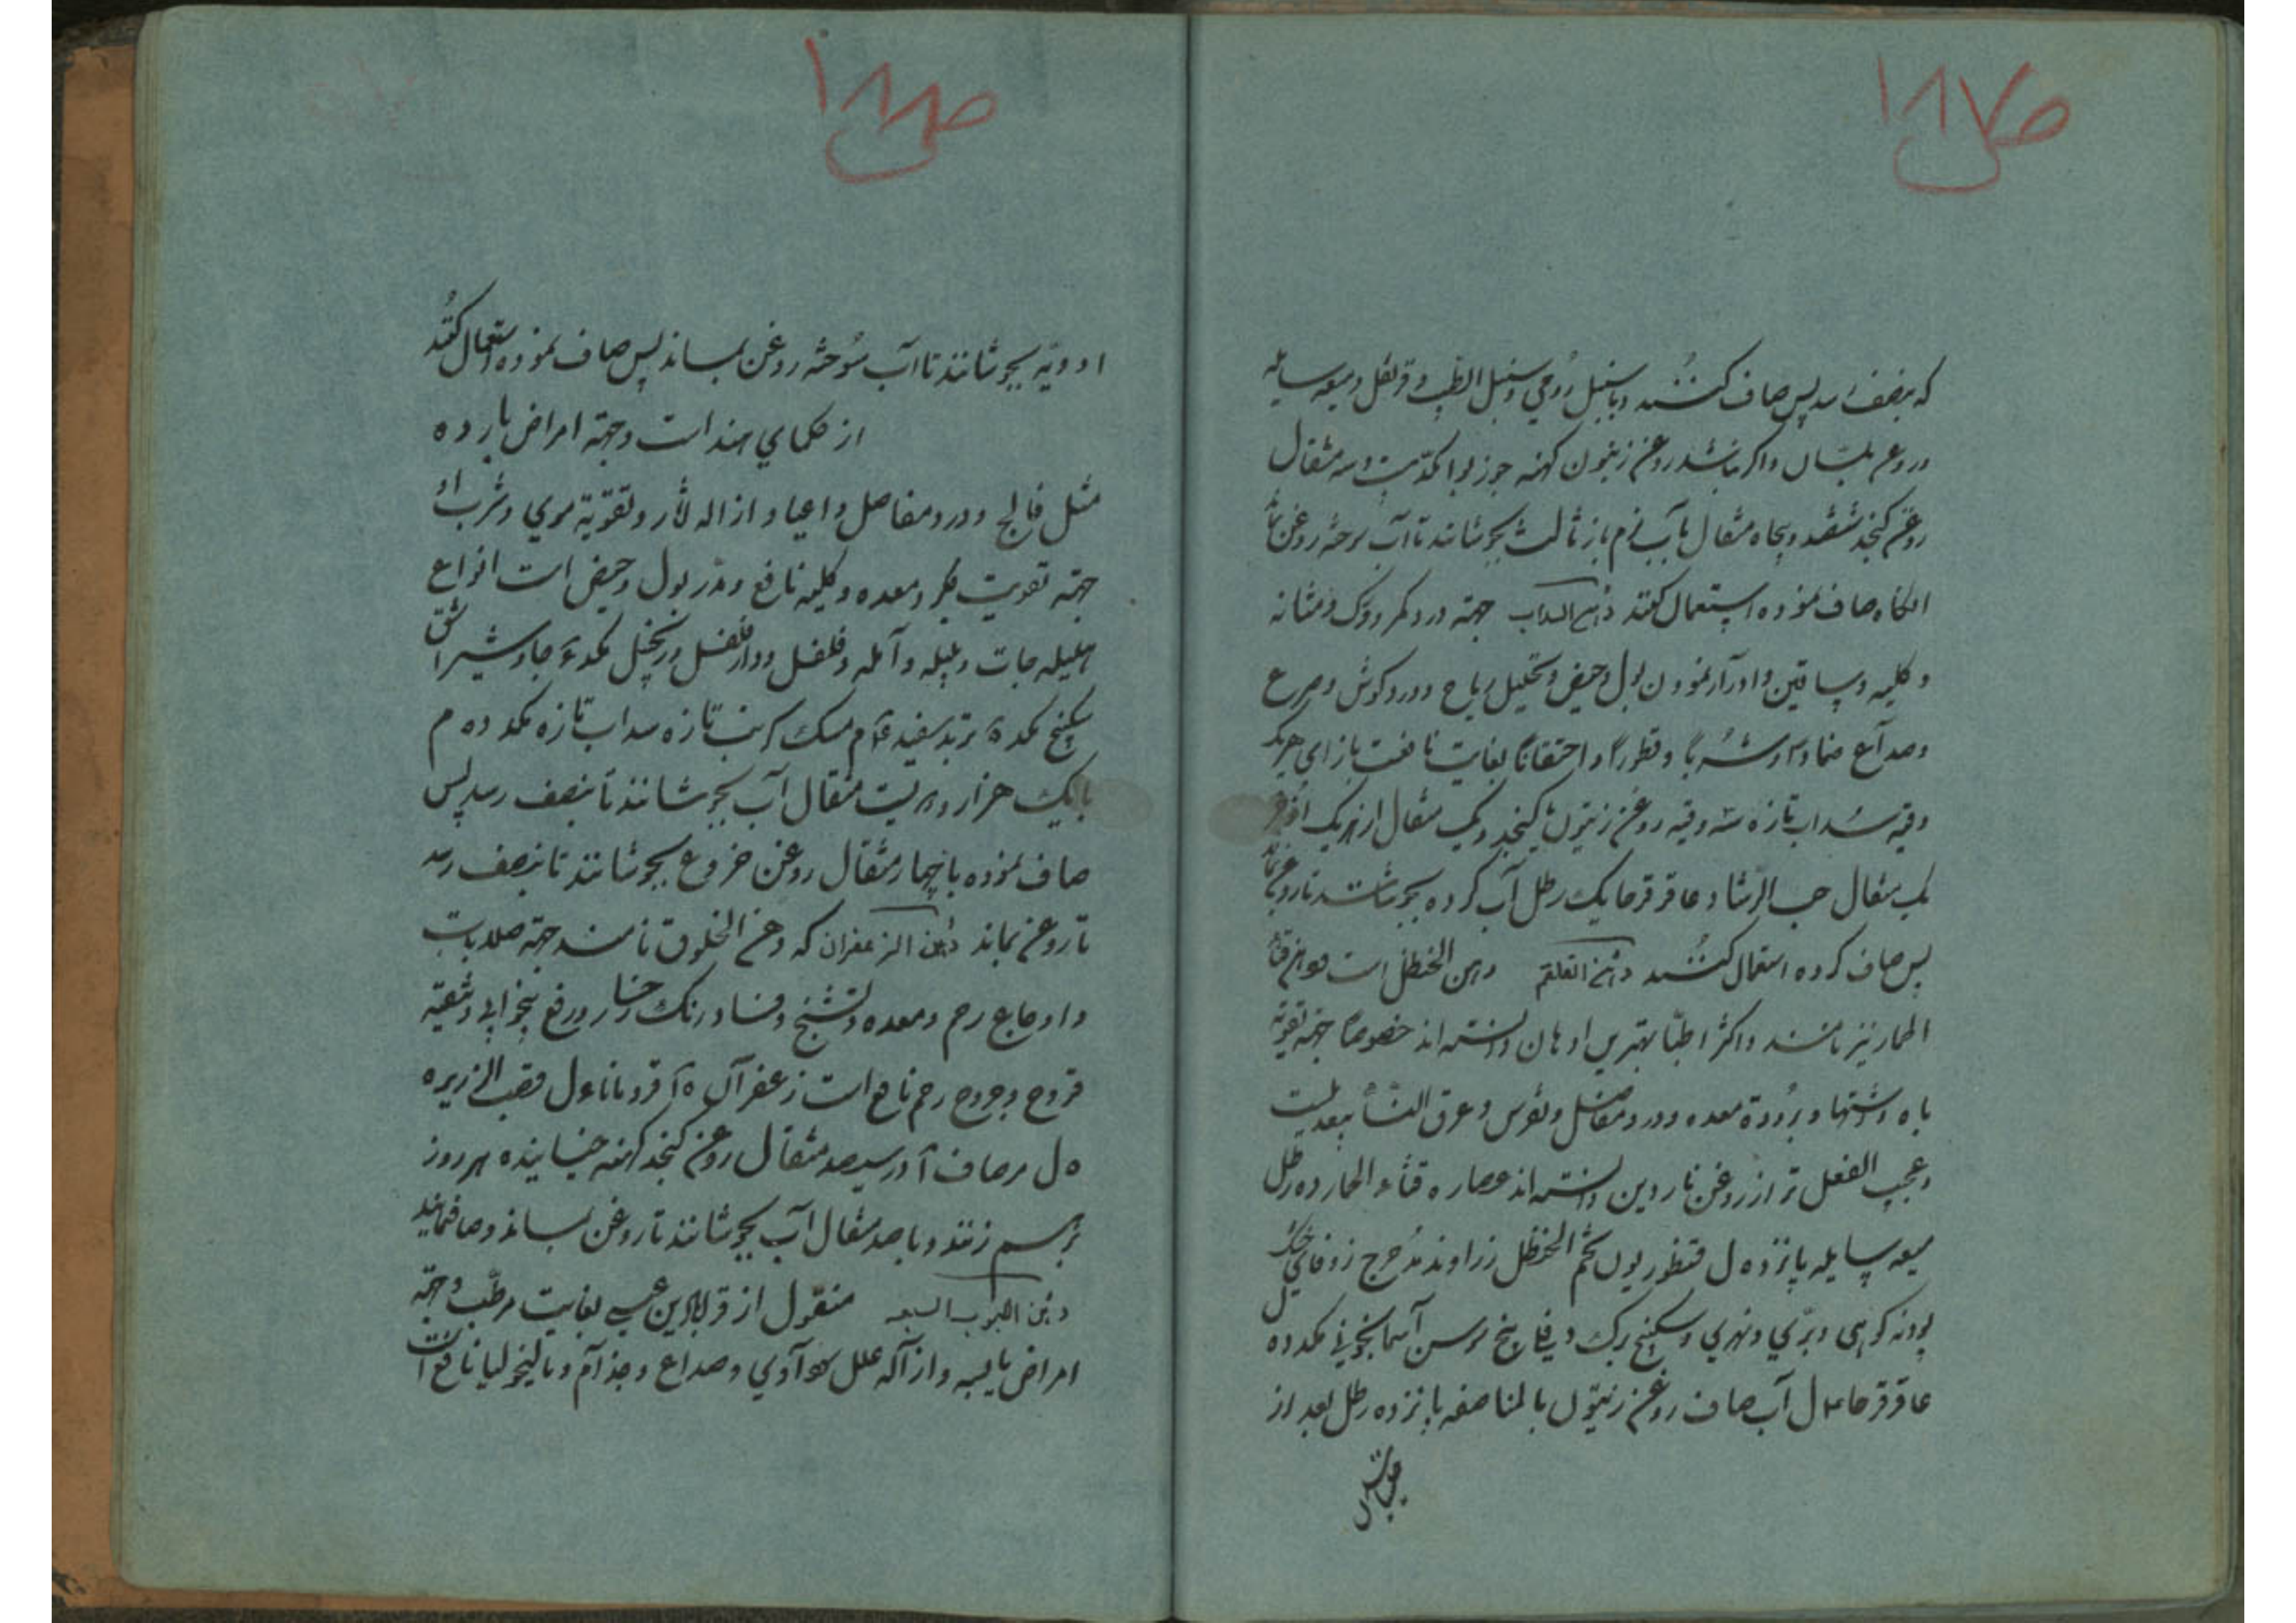 ص ۱۸۷
که بنصف رسد پس صاف کنند و با سنبل رومی و سنبل الطیب و قرنفل و میعه سایله
و روغن بلسان و اگر نباشد روغن زیتون کهنه جوز بوا یکدو بیست و سه مثقال
روغن کنجد ششصد و پنجاه مثقال بآب نرم باز ثالث بجوشانند تا آب سوخته روغن بماند
انگاه صاف نموده استعمال کنند دهن السداب جهته درد کمر و ورک و مثانه
و کلیه و ساقین و ادرار نمودن بول و حیض و تحلیل ریاح و درد گوش و صرع
و صداع ضمادا و شربا و قطورا و احتقانا بغایت نافعست بازای هر یک
وقیه سداب تازه سه وقیه روغن زیتون یا کنجد و یک مثقال از هر یک
یک مثقال حب الرشاد عاقرقرحا یک رطل آب کرده بجوشانند تا روغن بماند
پس صاف کرده استعمال کنند دهن العلقم دهن الحنظل است و دهن قثاء
الحمار نیز نامند و اکثر اطبا بهترین ادهان دانسته اند خصوصا جهته تقویة
باه و اشتها و برودة معده و درد مفاصل و نقرس و عرق النسا بیعدیلست
و عجیب الفعل تر از روغن ناردین دانسته اند عصاره قثاء الحمار ده رطل
میعه سایله پانزده ل قنطوریون تخم الحنظل زراوند مدحرج زوفای خشک
پودنه کوهی و بری و نهری و سکبینج برک دفلی بیخ سوسن آسمانجونی مکد ده ل
عاقرقرحا ۸ ل آب صاف روغن زیتون بالمناصفه پانزده رطل بعد از
ص ۱۸۸
ادویه بجوشانند تا آب سوخته روغن بماند پس صاف نموده استعمال کنند
از حکمای هند است و جهته امراض بارده
مثل فالج و درد مفاصل و اعیا و ازاله آثار و تقویة موی و شرب او
جهته تقویت جگر و معده و کلیه نافع و مدر بول و حیض است انواع
هلیله جات و بلیله و آمله و فلفل و دارفلفل و زنجبیل مکد جاوشیر اشق
سکبینج مکد تربد سفید کرنب تازه سداب تازه مکد ده م
با یک هزار و دویست مثقال آب بجوشانند تا بنصف رسد پس
صاف نموده با چهار مثقال روغن خروع بجوشانند تا بنصف رسد
تا روغن بماند دهن الزعفران که دهن الخلوق نامند جهته صلابات
و اوجاع رحم و معده و تشنج و فساد رنک رخسار و رفع بیخوابی و تنقیه
قروح و جروح رحم نافع است زعفران قردمانا ل قصب الذریره
ه ل مر صاف در سیصد مثقال روغن کنجد کهنه خیسانیده هر روز
بر هم زنند و با صد مثقال آب بجوشانند تا روغن بماند و صاف نمایند
دهن الحبوب السبعه منقول از قرابادین بغایت مرطب و جهته
امراض یابسه و ازاله علل سوداوی و صداع و جذام و مالیخولیا نافع است